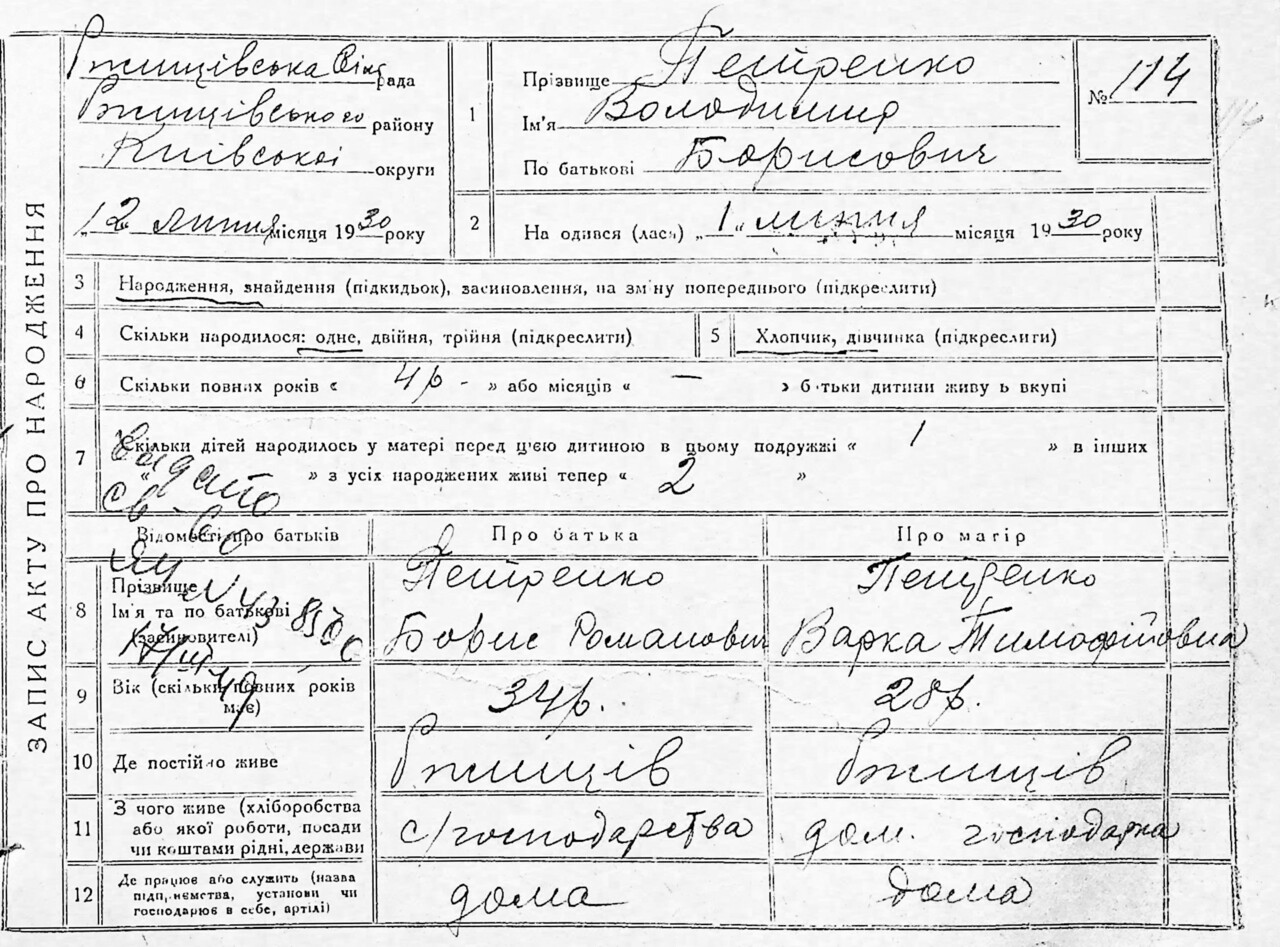 ЗАПИС АКТУ ПРО НАРОДЖЕННЯ
Ржищівська рада
Ржищівського району
Київської округи
"12 липня місяця 1930 року
1
Прізвище Петренко
Ім'я Володимир
По батькові Борисович
№ 114
2
На одився (лась) „1" липня місяця 1930 року
3 Народження, знайдення (підкидьок), засиновлення, на зм'ну попереднього (підкреслити)
4 Скільки народилося: одне, двійня, трійня (підкреслити)
5 Хлопчик, дівчинка (підкреслити)
6 Скільки повних років « 4 р - » або місяців « — » б тьки дитини живу ь вкупі
7 Скільки дітей народилось у матері перед ц'єю дитиною в цьому подружжі « 1 » в інших
» з усіх народжених живі тепер « 2 »
Видано
св-во
Відомості про батьків
Про батька
Про матір
8
Прізвище
Ім'я та по батькові
(засиновителі)
Петренко
Борис Романович
Петренко
Варка Тимофіїовна
9 Вік (скільки повних років
має)
34 р.
28 р.
10 Де постійно живе
Ржищів
Ржищів
11
З чого живе (хліборобства
або якої роботи, посади
чи коштами рідні, держави
с/господарства
дом. господарка
12
Де працює або служить (назва
підприємства, установи чи
господарює в себе, артілі)
дома
дома